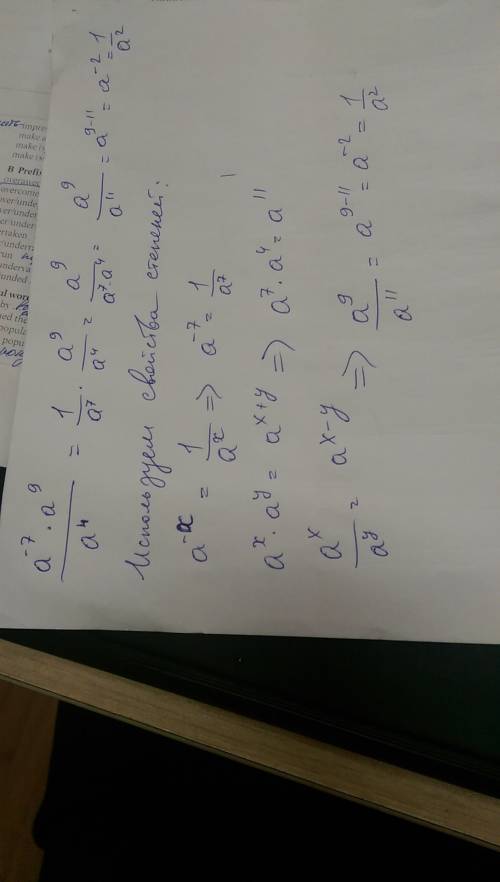 a⁻⁷ · a⁹ / a⁴ = 1/a⁷ · a⁹/a⁴ = a⁹/a⁷·a⁴ = a⁹/a¹¹ = a⁹⁻¹¹ = a⁻² = 1/a²
Используем свойства степеней:
a⁻ˣ = 1/aˣ => a⁻⁷ = 1/a⁷
aˣ · aʸ = aˣ⁺ʸ => a⁷ · a⁴ = a¹¹
aˣ/aʸ = aˣ⁻ʸ => a⁹/a¹¹ = a⁹⁻¹¹ = a⁻² = 1/a²
make a
make i
make i
B Prefi
overcome
over/under
ver/under
er/under
ertaken
er/underra
run
underva
unded
al wor
by
ed the
popula
popu